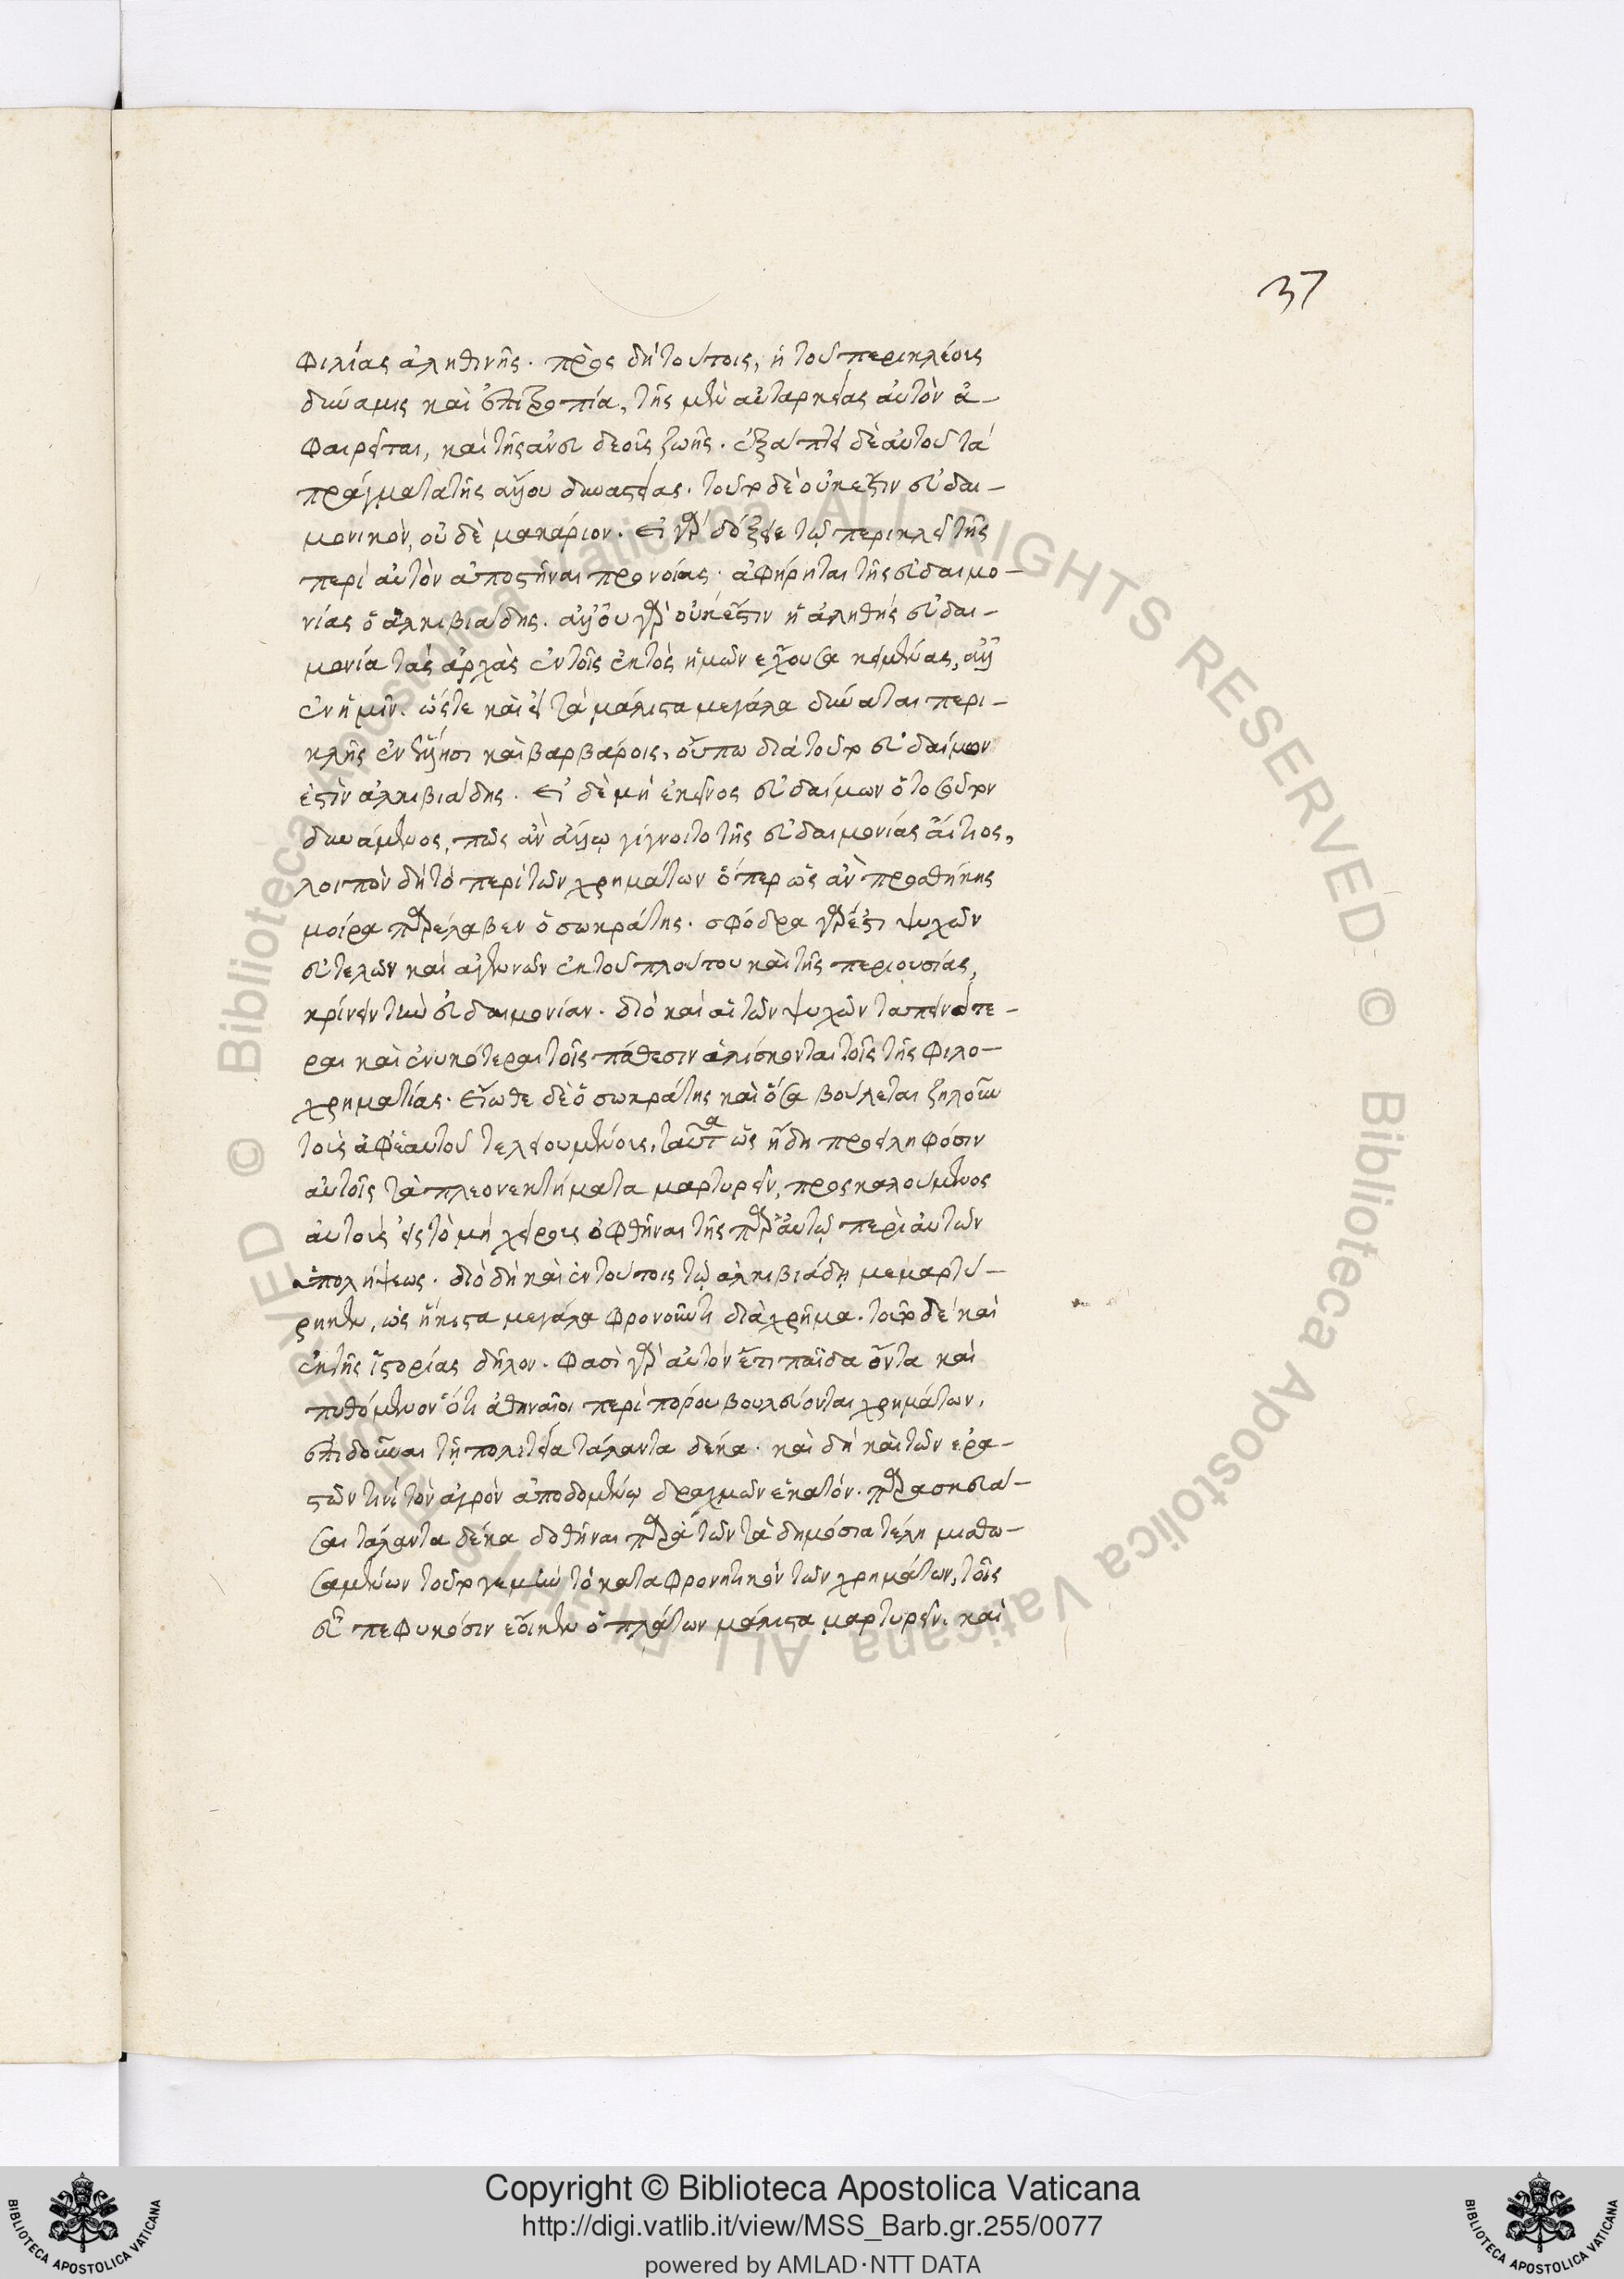 37
φιλίας ἀληθινῆς. πρὸς δὴ τούτοις, ἡ τοῦ περικλέους
δύναμις καὶ ἐπιτροπία, τῆς μὲν αὐταρκείας αὐτὸν ἀ-
φαιρεῖται, καὶ τῆς ἀνενδεοῦς ζωῆς. ἐξάπτει δὲ αὐτοῦ τὰ
πράγματα τῆς ἄλλου δυναστείας. τοῦτο δὲ οὐκ ἔστιν εὐδαι-
μονικὸν, οὐδὲ μακάριον. Εἰ γὰρ δόξειε τῷ περικλεῖ τῆς
περὶ αὐτὸν ἀποστῆναι προνοίας. ἀφήρηται τῆς εὐδαιμο-
νίας ὁ ἀλκιβιάδης. ἀλλ' οὐ γὰρ οὐκ ἔστιν ἡ ἀληθὴς εὐδαι-
μονία τὰς ἀρχὰς ἐν τοῖς ἐκτὸς ἡμῶν ἔχουσα κειμένας, ἀλλ'
ἐν ἡμῖν. ὥστε καὶ εἰ τὰ μάλιστα μεγάλα δύναται περι-
κλῆς ἐν ἕλλησι καὶ βαρβάροις, οὔπω διὰ τοῦτο εὐδαίμων
ἐστὶν ἀλκιβιάδης. Εἰ δὲ μὴ ἐκεῖνος εὐδαίμων ὁ τοσοῦτον
δυνάμενος, πῶς ἂν ἄλλῳ γίγνοιτο τῆς εὐδαιμονίας αἴτιος,
λοιπὸν δὴ τὸ περὶ τῶν χρημάτων ὅπερ ὡς ἂν προσθήκης
μοίρᾳ παρέλαβεν ὁ σωκράτης. σφόδρα γάρ ἐστι ψυχῶν
εὐτελῶν καὶ ἀγεννῶν ἐκ τοῦ πλούτου καὶ τῆς περιουσίας,
κρίνειν τὴν εὐδαιμονίαν. διὸ καὶ αἱ τῶν ψυχῶν ταπεινότε-
ραι καὶ ἐνυλότεραι τοῖς πάθεσιν ἁλίσκονται τοῖς τῆς φιλο-
χρηματίας. Εἴωθε δὲ ὁ σωκράτης καὶ ὅσα βούλεται ζηλοῦν
τοὺς ἀφ' ἑαυτοῦ τελειουμένους, ταῦτα ὡς ἤδη προειληφόσιν
αὐτοῖς τὰ πλεονεκτήματα μαρτυρεῖν, προσκαλούμενος
αὐτοὺς εἰς τὸ μὴ χείρους ὀφθῆναι τῆς παρ' αὐτῷ περὶ αὐτῶν
ὑπολήψεως. διὸ δὴ καὶ ἐν τούτοις τῷ ἀλκιβιάδῃ μεμαρτύ-
ρηκεν, ὡς ἥκιστα μεγάλα φρονοῦντι διὰ χρῆμα. τοῦτο δὲ καὶ
ἐκ τῆς ἱστορίας δῆλον. Φασὶ γὰρ αὐτὸν ἔτι παῖδα ὄντα καὶ
πυθόμενον ὅτι ἀθηναῖοι περὶ πόρου βουλεύονται χρημάτων,
ἐπιδοῦναι τῇ πολιτείᾳ τάλαντα δέκα. καὶ δὴ καὶ τῶν ἐρα-
στῶν τινὶ τὸν ἀγρὸν ἀποδομένῳ δραχμῶν ἑκατόν. παρασκευά-
σαι τάλαντα δέκα δοθῆναι παρὰ τῶν τὰ δημόσια τέλη μισθω-
σαμένων τοῦτο γε μὲν τὸ καταφρονητικὸν τῶν χρημάτων, τοῖς
εὖ πεφυκόσιν ἔοικεν ὁ πλάτων μάλιστα μαρτυρεῖν. καὶ
Copyright © Biblioteca Apostolica Vaticana
http://digi.vatlib.it/view/MSS_Barb.gr.255/0077
powered by AMLAD·NTT DATA
BIBLIOTECA APOSTOLICA VATICANA
BIBLIOTECA APOSTOLICA VATICANA
© Biblioteca Apostolica Vaticana ALL RIGHTS RESERVED © Biblioteca Apostolica Vaticana ALL RIGHTS RESERVED